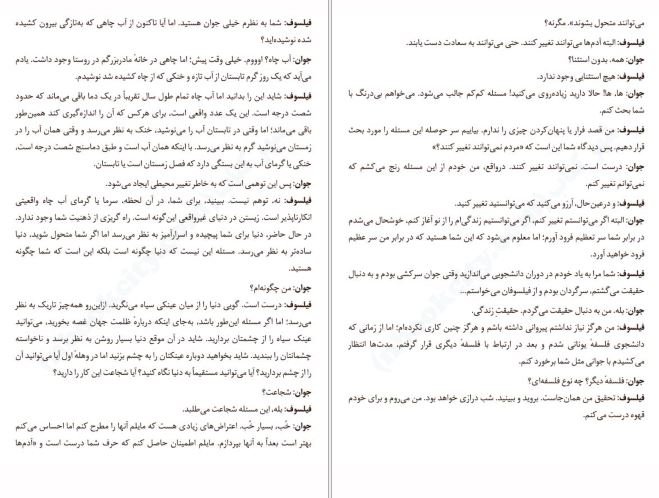 فیلسوف: شما به نظرم خیلی جوان هستید. اما آیا تاکنون از آب چاهی که به‌تازگی بیرون کشیده
شده نوشیده‌اید؟
جوان: آب چاه؟ اوووم. خیلی وقت پیش؛ اما چاهی در خانهٔ مادربزرگم در روستا وجود داشت. یادم
می‌آید که یک روز گرم تابستان از آب تازه و خنکی که از چاه کشیده شد نوشیدم.
فیلسوف: شاید این را بدانید اما آب چاه تمام طول سال تقریباً در یک دما باقی می‌ماند که حدود
شصت درجه است. این یک عدد واقعی است، برای هرکس که آن را اندازه‌گیری کند همین‌طور
باقی می‌ماند؛ اما وقتی در تابستان آب را می‌نوشید، خنک به نظر می‌رسد و وقتی همان آب را در
زمستان می‌نوشید گرم به نظر می‌رسد. با اینکه همان آب است و طبق دماسنج شصت درجه است،
خنکی یا گرمای آب به این بستگی دارد که فصل زمستان است یا تابستان.
جوان: پس این توهمی است که به خاطر تغییر محیطی ایجاد می‌شود.
فیلسوف: نه، توهم نیست. ببینید، برای شما، در آن لحظه، سرما یا گرمای آب چاه واقعیتی
انکارناپذیر است. زیستن در دنیای غیرواقعی این‌گونه است. راه گریزی از ذهنیت شما وجود ندارد.
در حال حاضر، دنیا برای شما پیچیده و اسرارآمیز به نظر می‌رسد اما اگر شما متحول شوید، دنیا
ساده‌تر به نظر می‌رسد. مسئله این نیست که دنیا چگونه است بلکه این است که شما چگونه
هستید.
جوان: من چگونه‌ام؟
فیلسوف: درست است. گویی دنیا را از میان عینکی سیاه می‌نگرید. ازاین‌رو همه‌چیز تاریک به نظر
می‌رسد؛ اما اگر مسئله این‌طور باشد، به‌جای اینکه دربارهٔ ظلمت جهان غصه بخورید، می‌توانید
عینک سیاه را از چشمتان بردارید. شاید در آن موقع دنیا بسیار روشن به نظر برسد و ناخواسته
چشمانتان را ببندید. شاید بخواهید دوباره عینکتان را به چشم بزنید اما در وهلهٔ اول آیا می‌توانید آن
را از چشم بردارید؟ آیا می‌توانید مستقیماً به دنیا نگاه کنید؟ آیا شجاعت این کار را دارید؟
جوان: شجاعت؟
فیلسوف: بله، این مسئله شجاعت می‌طلبد.
جوان: خُب، بسیار خُب. اعتراض‌های زیادی هست که مایلم آنها را مطرح کنم اما احساس می‌کنم
بهتر است بعداً به آنها بپردازم. مایلم اطمینان حاصل کنم که حرف شما درست است و «آدم‌ها
می‌توانند متحول بشوند». مگرنه؟
فیلسوف: البته آدم‌ها می‌توانند تغییر کنند. حتی می‌توانند به سعادت دست یابند.
جوان: همه، بدون استثنا؟
فیلسوف: هیچ استثنایی وجود ندارد.
جوان: ها، ها! حالا دارید زیاده‌روی می‌کنید! مسئله کم‌کم جالب می‌شود. می‌خواهم بی‌درنگ با
شما بحث کنم.
فیلسوف: من قصد فرار یا پنهان‌کردن چیزی را ندارم. بیاییم سر حوصله این مسئله را مورد بحث
قرار دهیم. پس دیدگاه شما این است که «مردم نمی‌توانند تغییر کنند؟»
جوان: درست است. نمی‌توانند تغییر کنند. درواقع، من خودم از این مسئله رنج می‌کشم که
نمی‌توانم تغییر کنم.
فیلسوف: و درعین‌حال، آرزو می‌کنید که می‌توانستید تغییر کنید.
جوان: البته اگر می‌توانستم تغییر کنم، اگر می‌توانستیم زندگی‌ام را از نو آغاز کنم، خوشحال می‌شدم
در برابر شما سر تعظیم فرود آورم؛ اما معلوم می‌شود که این شما هستید که در برابر من سر عظیم
فرود خواهید آورد.
فیلسوف: شما مرا به یاد خودم در دوران دانشجویی می‌اندازید وقتی جوان سرکشی بودم و به دنبال
حقیقت می‌گشتم، سرگردان بودم و از فیلسوفان می‌خواستم...
جوان: بله. من به دنبال حقیقت می‌گردم. حقیقتِ زندگی.
فیلسوف: من هرگز نیاز نداشتم پیروانی داشته باشم و هرگز چنین کاری نکرده‌ام؛ اما از زمانی که
دانشجوی فلسفهٔ یونانی شدم و بعد در ارتباط با فلسفهٔ دیگری قرار گرفتم، مدت‌ها انتظار
می‌کشیدم با جوانی مثل شما برخورد کنم.
جوان: فلسفهٔ دیگر؟ چه نوع فلسفه‌ای؟
فیلسوف: تحقیق من همان‌جاست. بروید و ببینید. شب درازی خواهد بود. من می‌روم و برای خودم
قهوه درست می‌کنم.